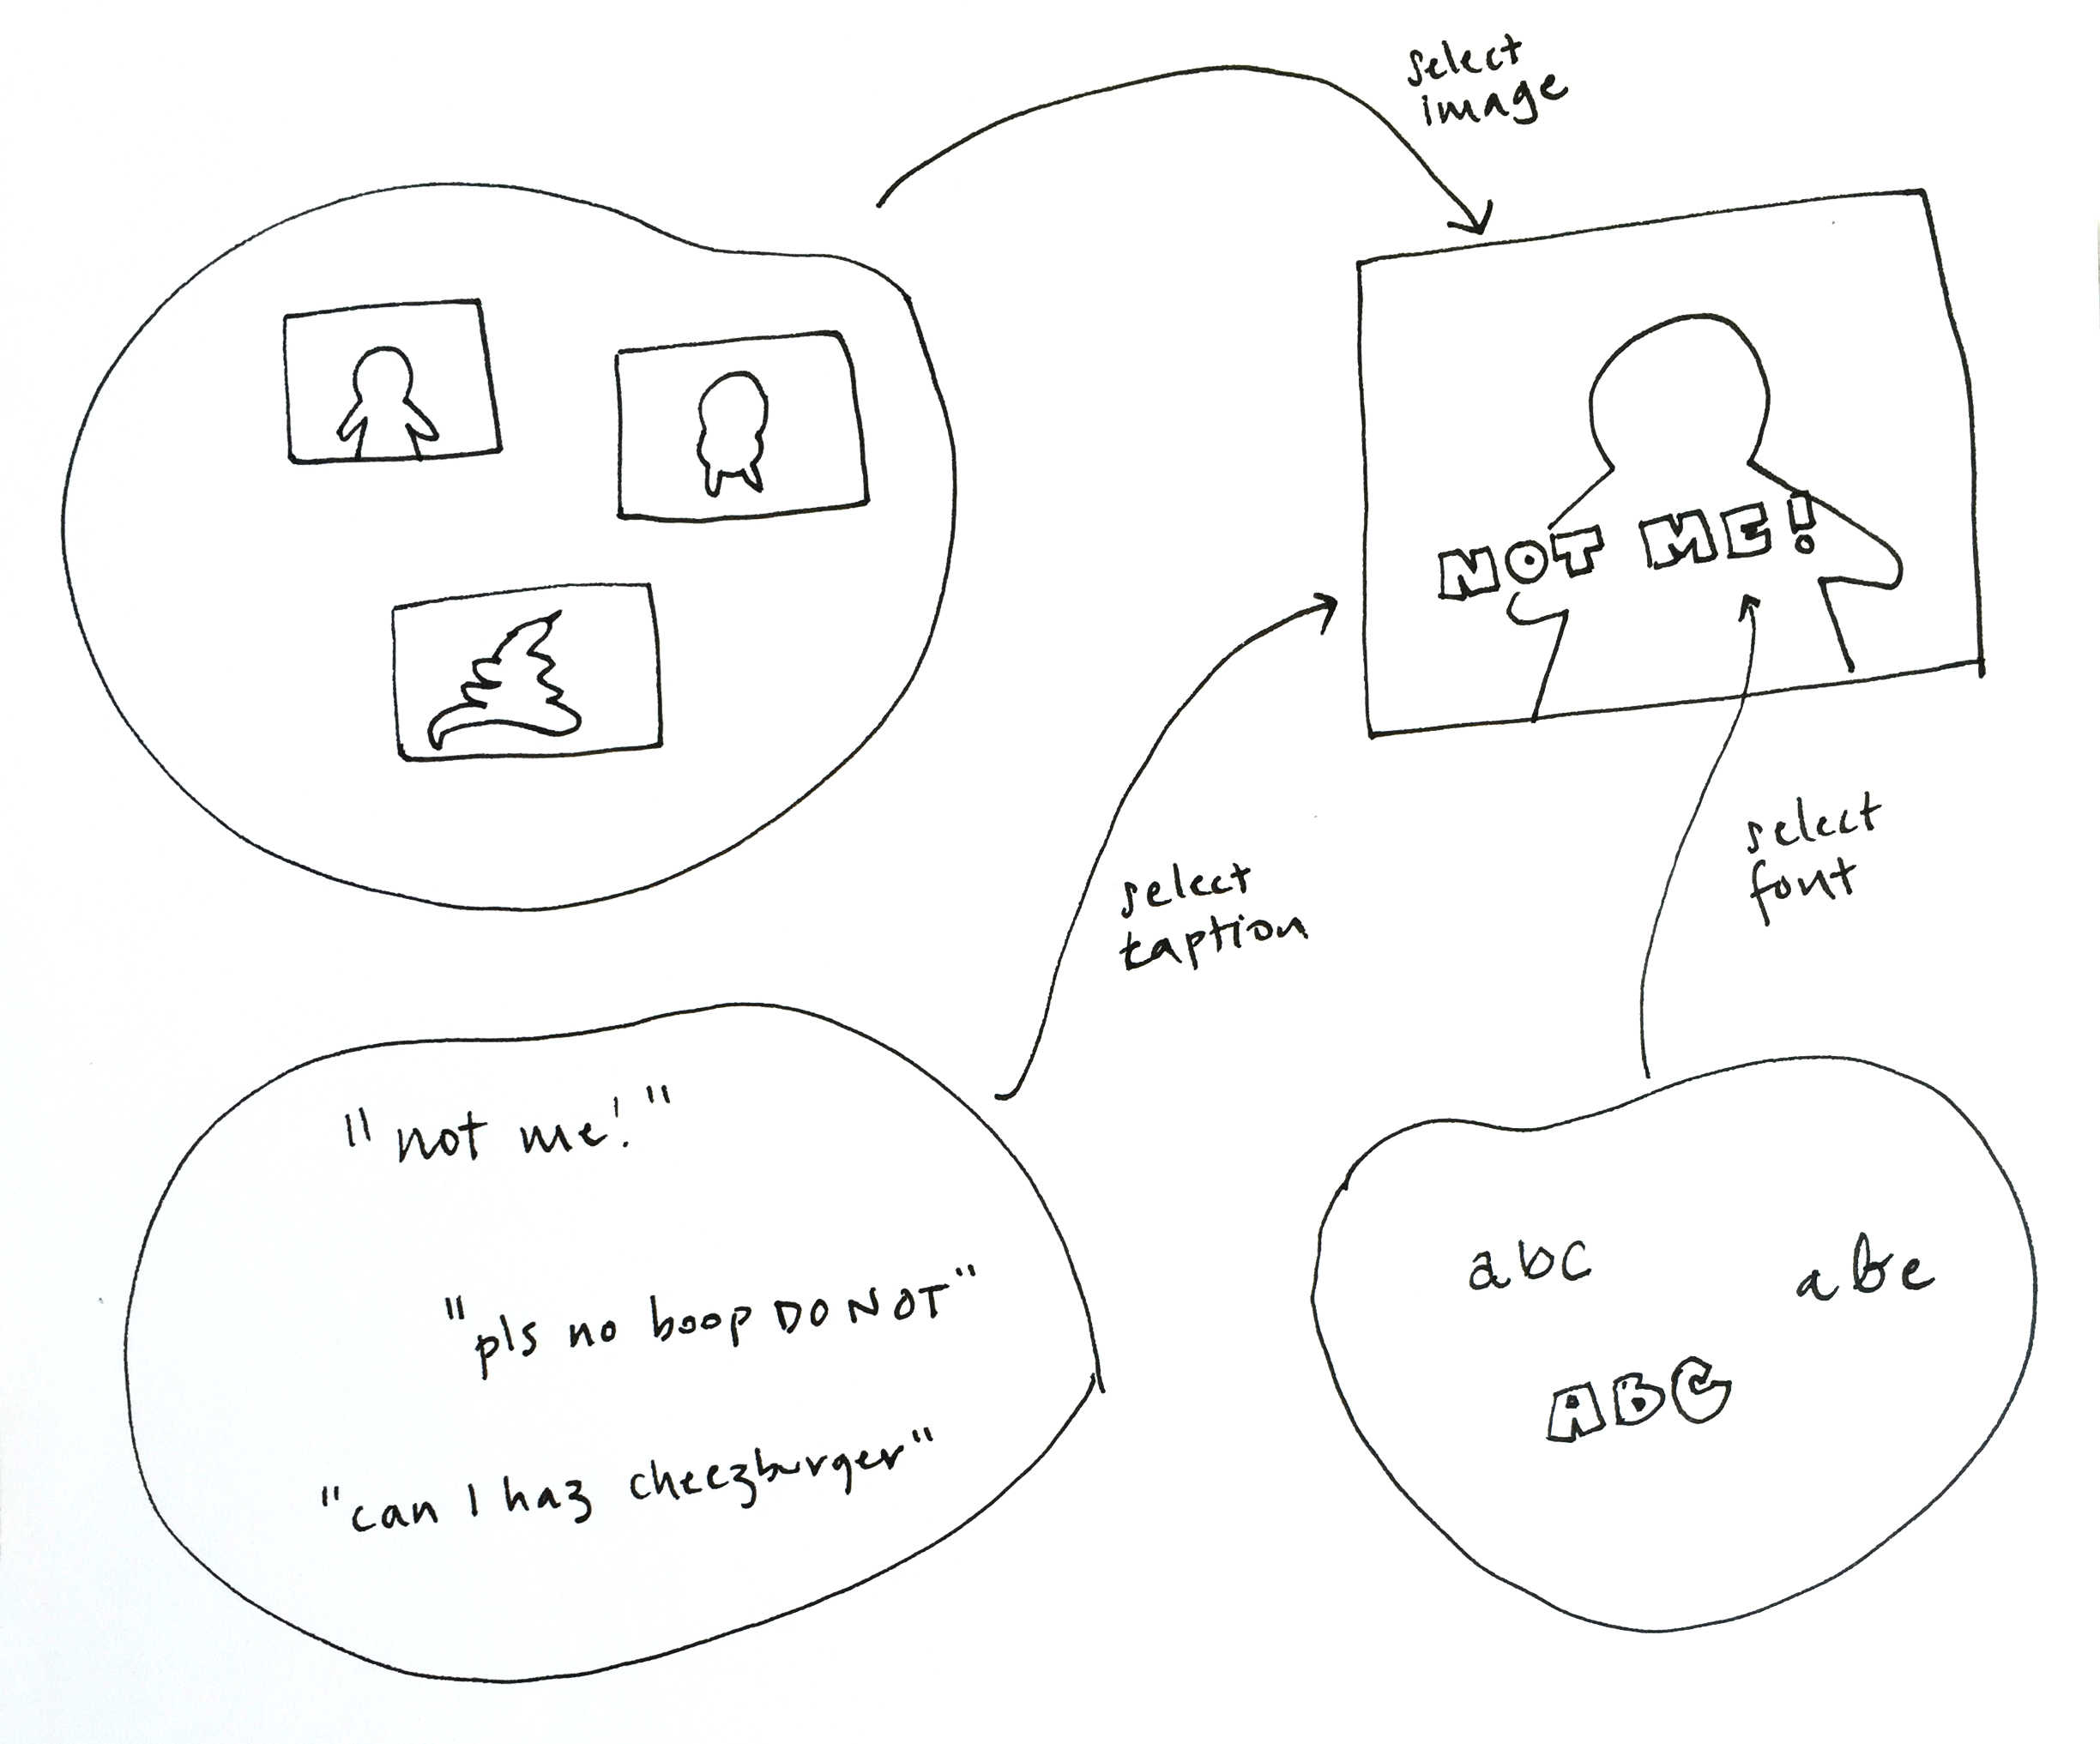 select
image
NOT ME!
select
taption
select
font
"not me!"
"pls no boop DO NOT"
"can I haz cheezburger"
abc
abc
ABC